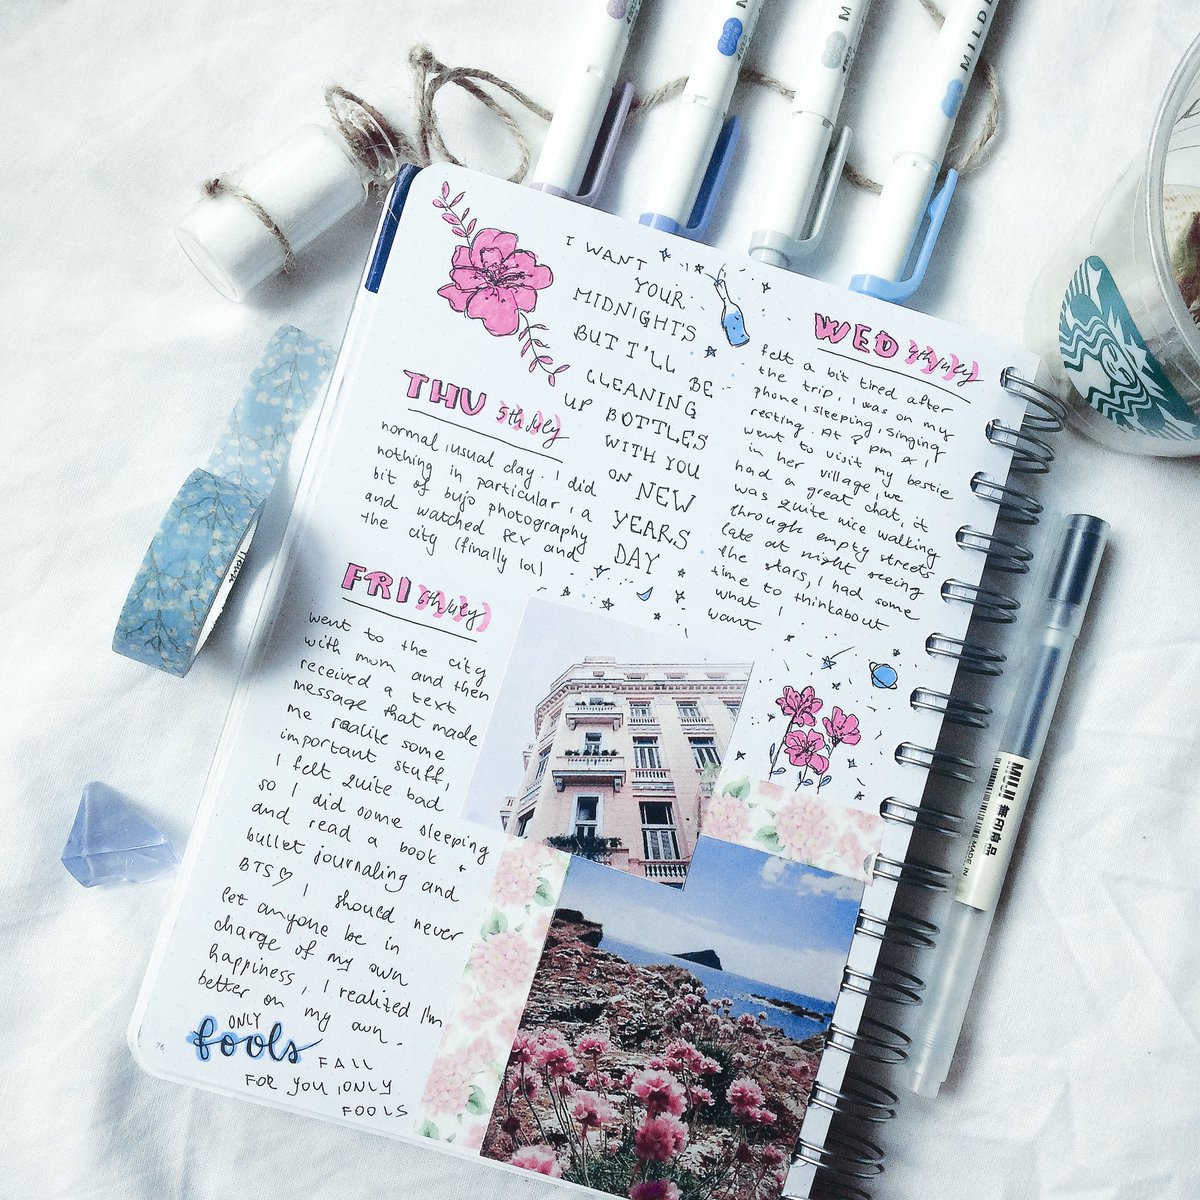 I WANT
YOUR
MIDNIGHTS
BUT I'LL BE
CLEANING
UP BOTTLES
WITH YOU
ON NEW
YEARS
DAY
WED 4th/july
felt a bit tired after
the trip, I was on my
phone, sleeping, singing
resting. At 8 pm I
went to visit my bestie
in her village, we
had a great chat, it
was quite nice walking
through empty streets
late at night seeing
the stars, I had some
time to thinkabout
what I
want
THU 5th/july
normal, usual day. I did
nothing in particular, a
bit of bujo photography
and watched rex and
the city (finally lol)
FRI 6th/july
went to the city
with mom and then
received a text
message that made
me realite some
important stuff,
I felt quite bad
so I did some sleeping
and read a book +
bullet journaling and
BTS♡ I should never
let anyone be in
charge of my own
happiness, I realized I'm
better on my own.
ONLY
fools FALL
FOR YOU, ONLY
FOOLS
76
MILD
MUJI 無印良品
MADE IN